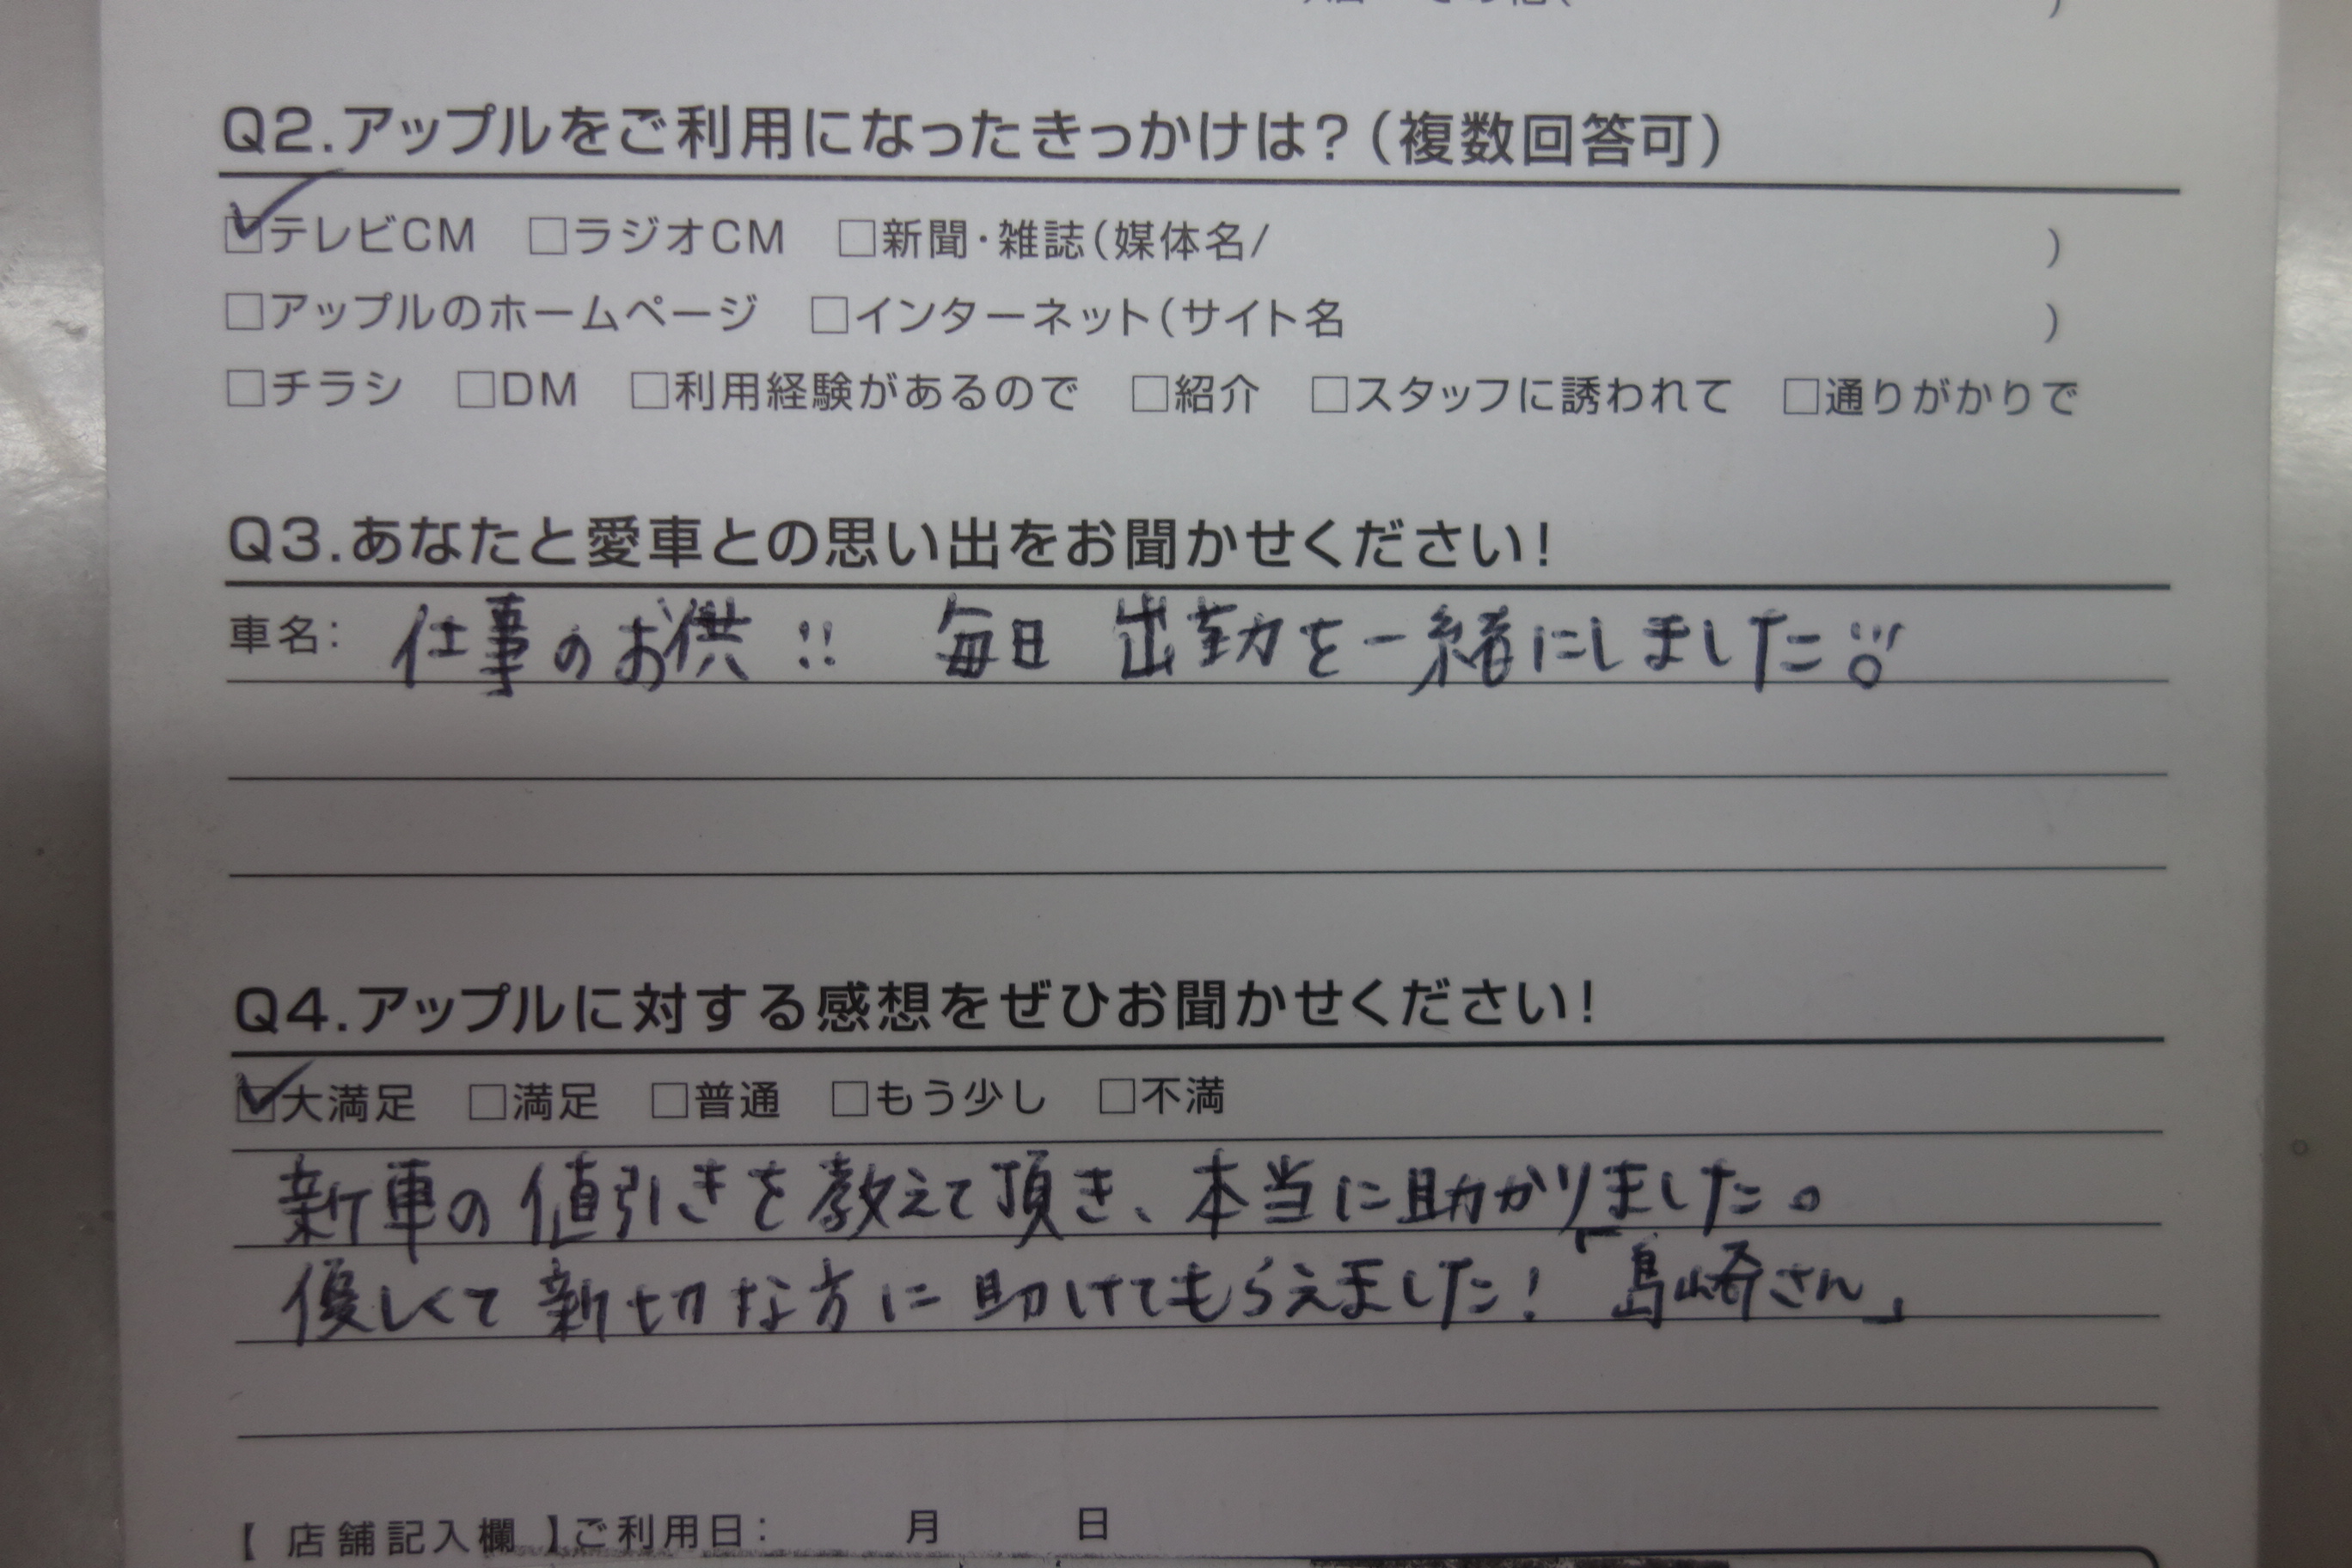 Q2.アップルをご利用になったきっかけは?(複数回答可)
☑テレビCM □ラジオCM □新聞・雑誌(媒体名/ )
□アップルのホームページ □インターネット(サイト名 )
□チラシ □DM □利用経験があるので □紹介 □スタッフに誘われて □通りがかりで
Q3.あなたと愛車との思い出をお聞かせください!
車名: 仕事のお供!! 毎日 出勤を一緒にしました
Q4.アップルに対する感想をぜひお聞かせください!
☑大満足 □満足 □普通 □もう少し □不満
新車の値引きを教えて頂き、本当に助かりました。
優しくて新切な方に助けてもらえました!「島崎さん」
【店舗記入欄】ご利用日: 月 日